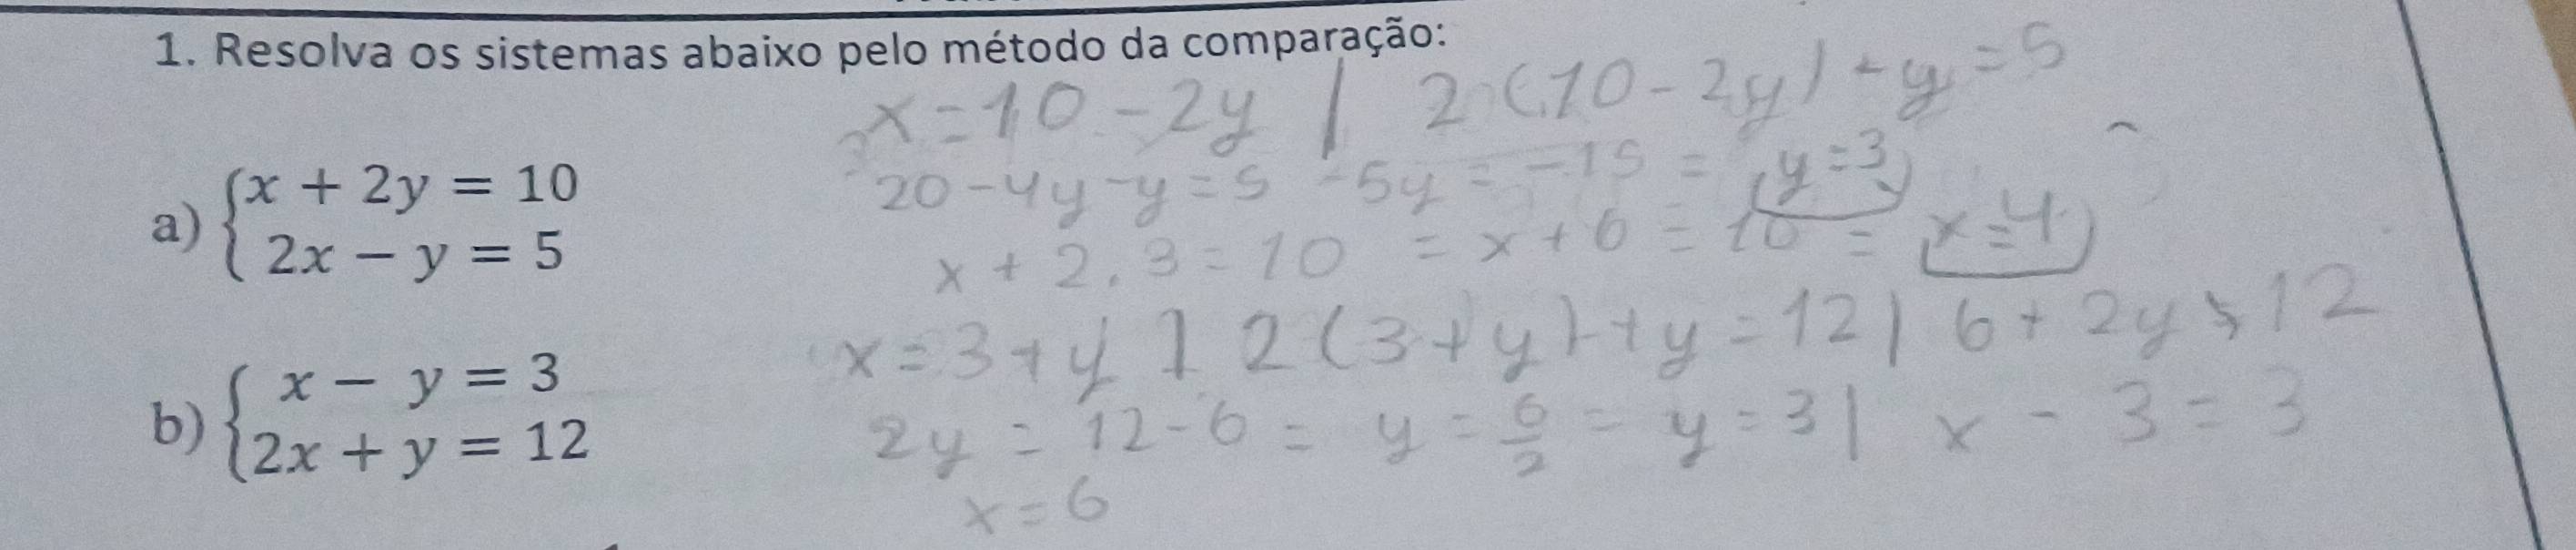 1. Resolva os sistemas abaixo pelo método da comparação:
x = 10 - 2y | 2 (10 - 2y) - y = 5
a) { x + 2y = 10
2x − y = 5
20 - 4y - y = 5 - 5y = -15 = y = 3
x + 2 . 3 = 10 = x + 6 = 10 = x = 4
b) { x − y = 3
2x + y = 12
x = 3 + y | 2 (3 + y) + y = 12 | 6 + 2y = 12
2y = 12 - 6 = y = 6/2 = y = 3 | x - 3 = 3
x = 6